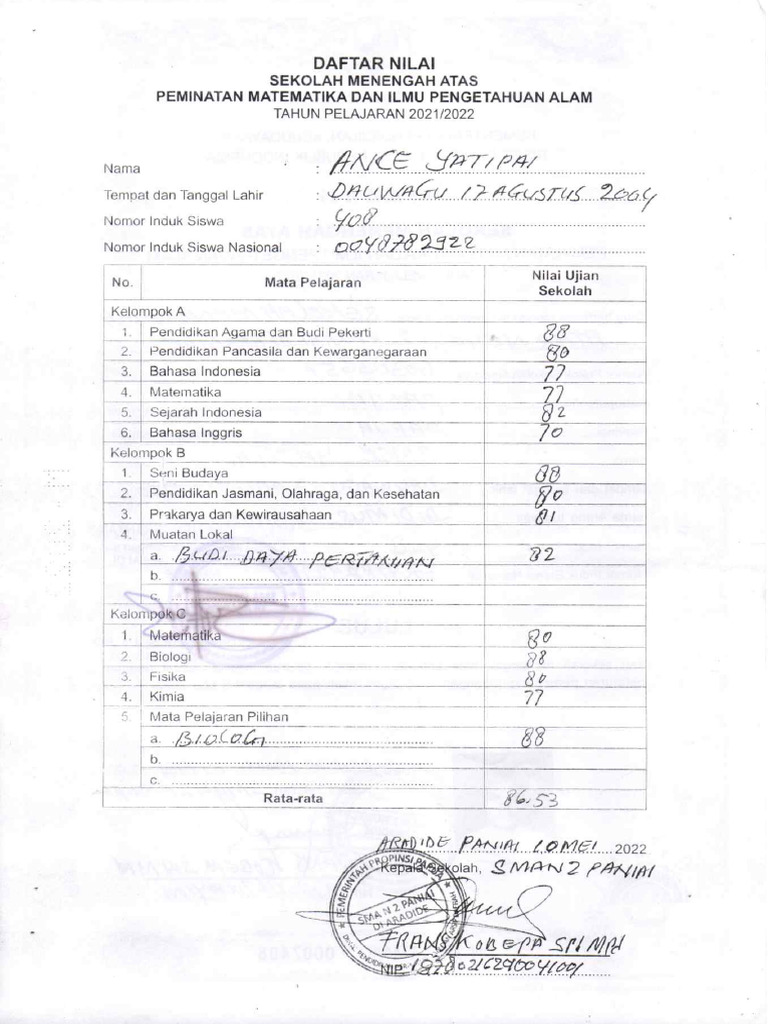 DAFTAR NILAI
SEKOLAH MENENGAH ATAS
PEMINATAN MATEMATIKA DAN ILMU PENGETAHUAN ALAM
TAHUN PELAJARAN 2021/2022
Nama : ANCE YATIPAI
Tempat dan Tanggal Lahir : DAUWAGU 17 AGUSTUS 2004
Nomor Induk Siswa : 408
Nomor Induk Siswa Nasional : 0048782922
No. Mata Pelajaran Nilai Ujian Sekolah
Kelompok A
1. Pendidikan Agama dan Budi Pekerti 88
2. Pendidikan Pancasila dan Kewarganegaraan 80
3. Bahasa Indonesia 77
4. Matematika 77
5. Sejarah Indonesia 82
6. Bahasa Inggris 70
Kelompok B
1. Seni Budaya 88
2. Pendidikan Jasmani, Olahraga, dan Kesehatan 80
3. Prakarya dan Kewirausahaan 81
4. Muatan Lokal
a. BUDI DAYA PERTANIAN 82
b.
c.
Kelompok C
1. Matematika 80
2. Biologi 88
3. Fisika 80
4. Kimia 77
5. Mata Pelajaran Pilihan
a. BIOLOGI 88
b.
c.
Rata-rata 86.53
ARADIDE PANIAI 10 MEI 2022
Kepala Sekolah, SMAN 2 PANIAI
PEMERINTAH PROPINSI PAPUA
SMA N 2 PANIAI
DI ARADIDE
FRANS KOBEPA
NIP.